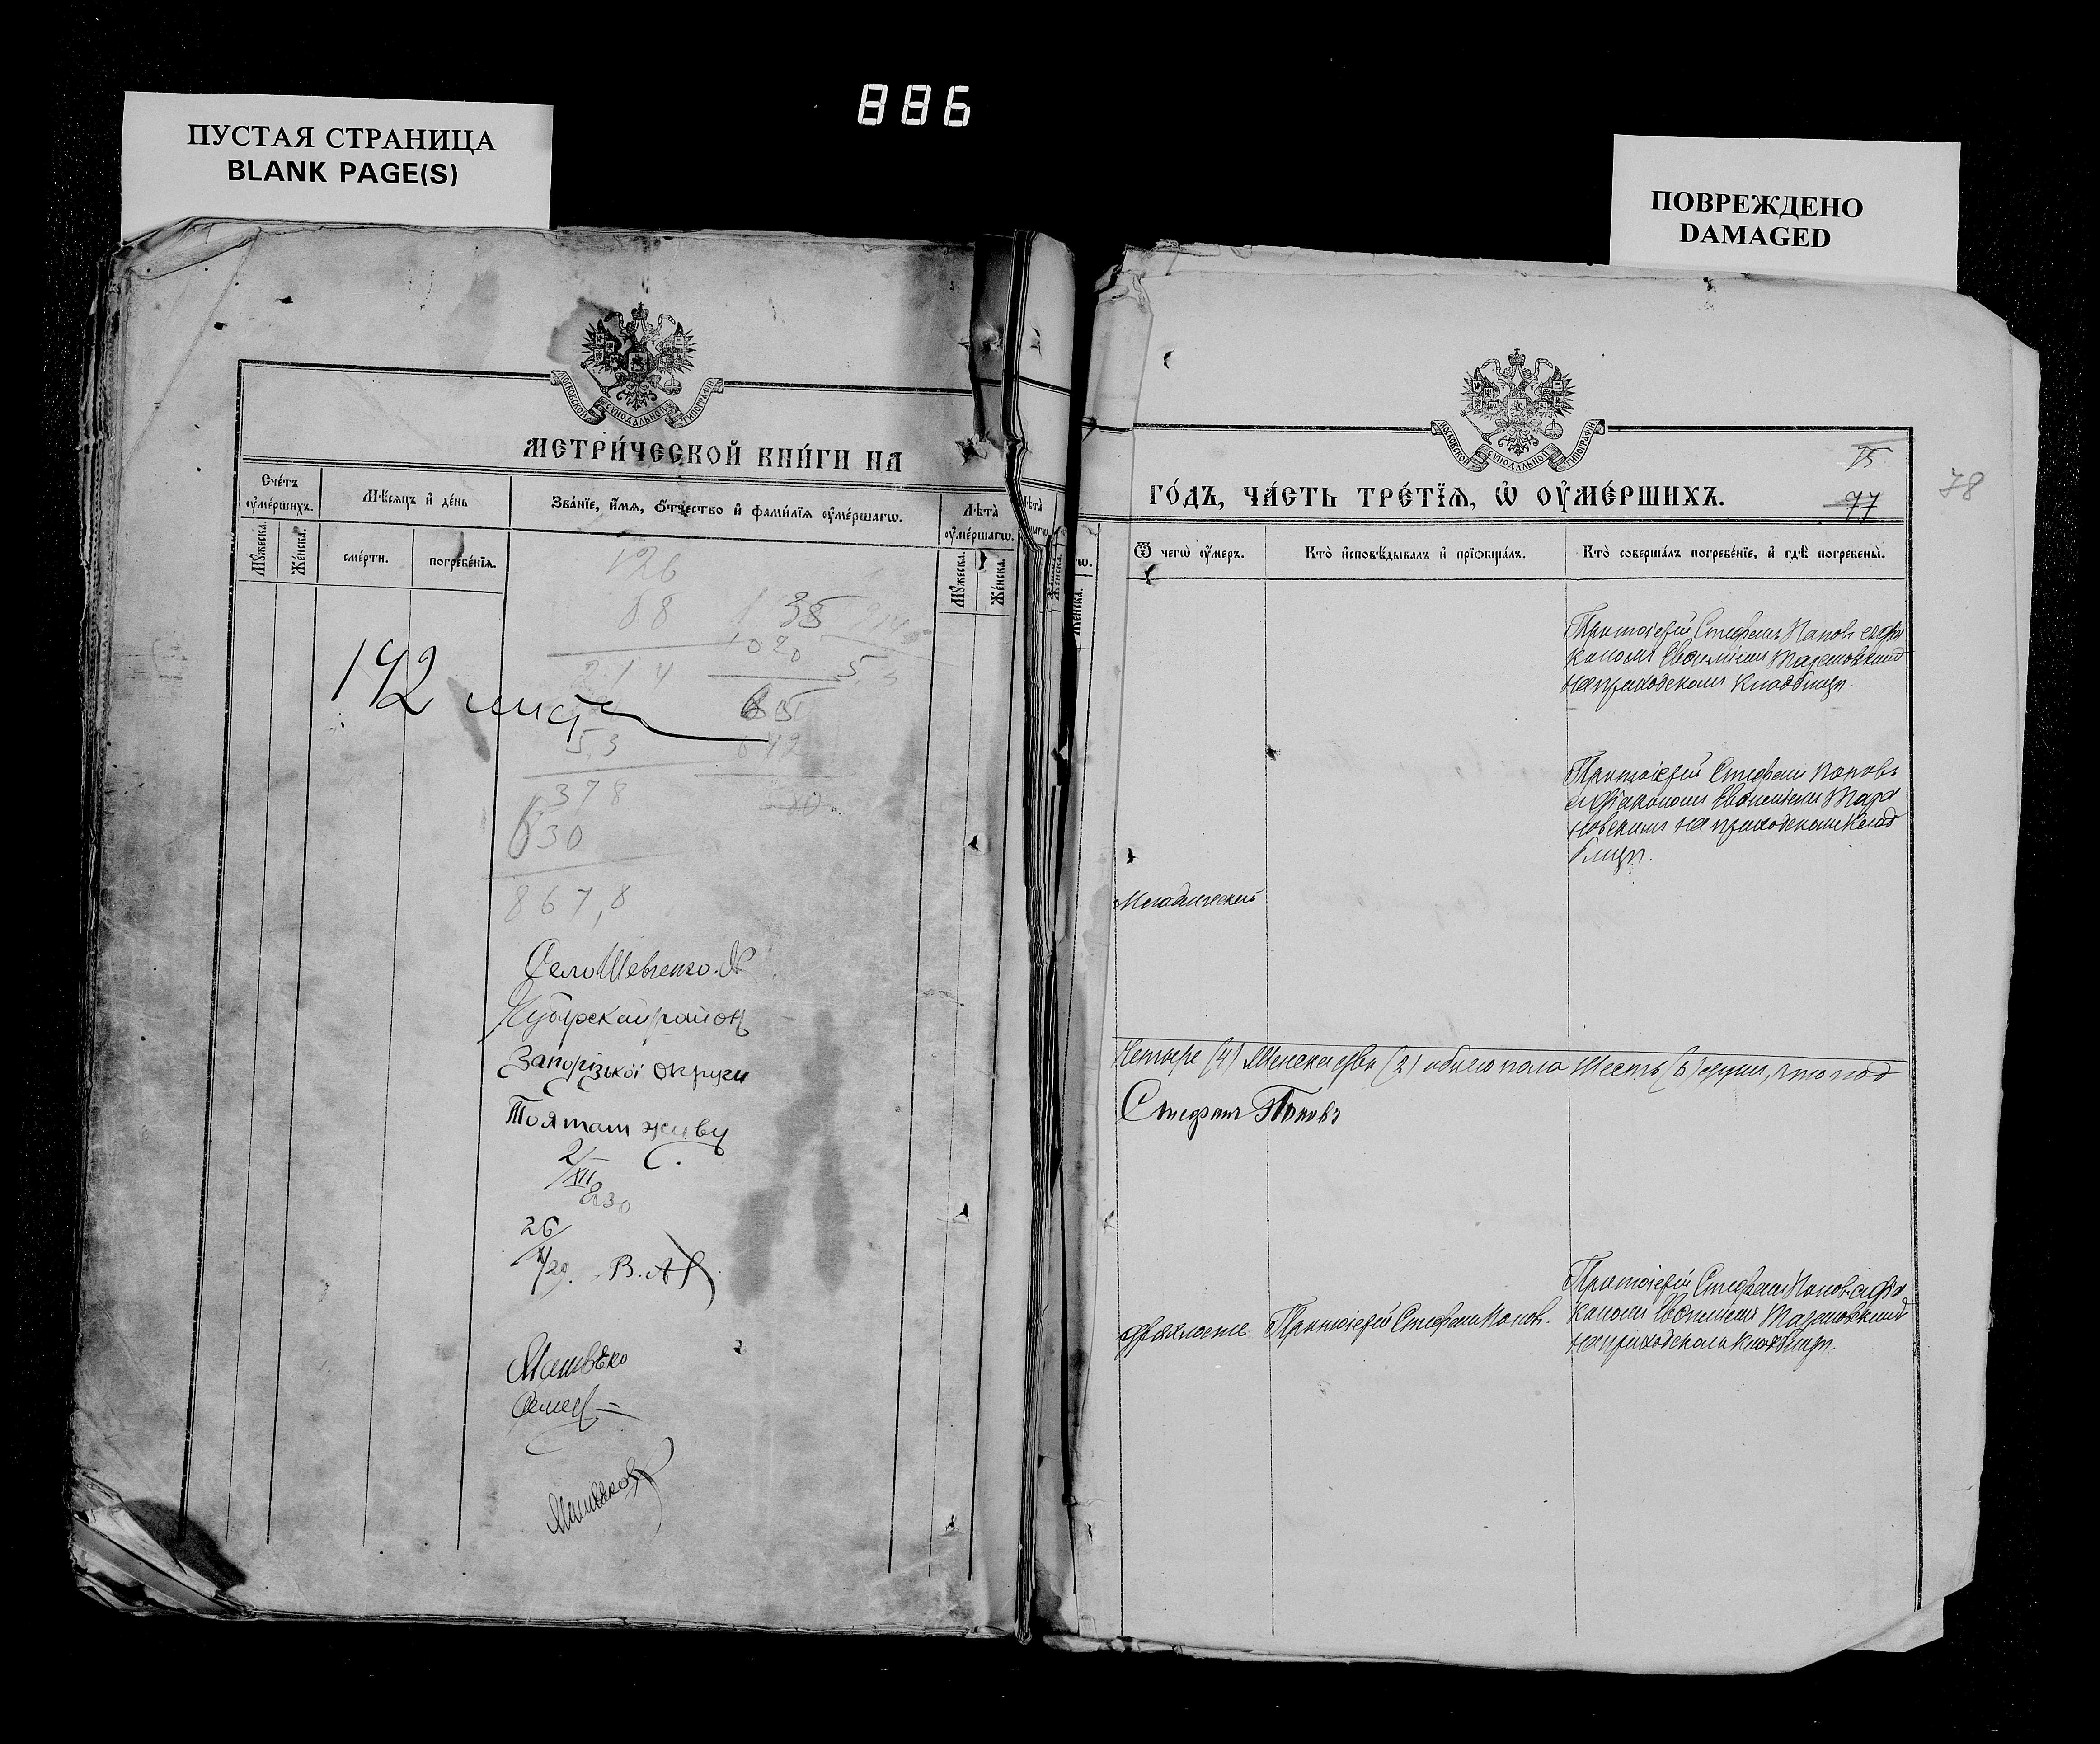 886
ПУСТАЯ СТРАНИЦА
BLANK PAGE(S)
ПОВРЕЖДЕНО
DAMAGED
МОСКОВСКОЙ СѴНОДАЛЬНОЙ ТИПОГРАФІИ
МЕТРИ́ЧЕСКОЙ КНИ́ГИ НА
Сче́тъ ᲂу҆ме́ршихъ.
Мѣ́сяцъ и҆ де́нь
Зва́нїе, и҆́мѧ, ѻ҆́тчество и҆ фами́лїѧ ᲂу҆ме́ршагѡ.
Лѣ́та ᲂу҆ме́ршагѡ.
Мꙋ́жеска.
Же́нска.
сме́рти.
погребе́нїѧ.
Мꙋ́жеска.
Же́нска.
126
88
214
53
378
630
867,8
35
1020
65
192 лист
Село Шевченко
район
Запорізької округи
Тоя там живу
2/XII
830
26/
В.
МОСКОВСКОЙ СѴНОДАЛЬНОЙ ТИПОГРАФІИ
75
ГО́ДЪ, ЧА́СТЬ ТРЕ́ТЇѦ, Ѡ҆ ОУ҆МЕ́РШИХЪ.
77
78
Ѿ чегѡ̀ ᲂу҆́меръ.
Кто̀ и҆сповѣ́дывалъ и҆ прїѡбща́лъ.
Кто̀ соверша́лъ погребе́нїе, и҆ гдѣ̀ погребены̀.
Протоіерей Стефанъ Поповъ съ діа
кономъ Евфиміемъ Тарановскимъ
на приходскомъ кладбищѣ.
Протоіерей Стефанъ Поповъ
съ діакономъ Евфиміемъ Тара
новскимъ на приходскомъ клад
бищѣ.
Четыре (4) женска два (2) обоего пола шесть (6) душъ,
Стефанъ Поповъ
Протоіерей Стефанъ Поповъ съ діа
кономъ Евфиміемъ Тарановскимъ
на приходскомъ кладбищѣ.
Протоіерей Стефанъ Поповъ.